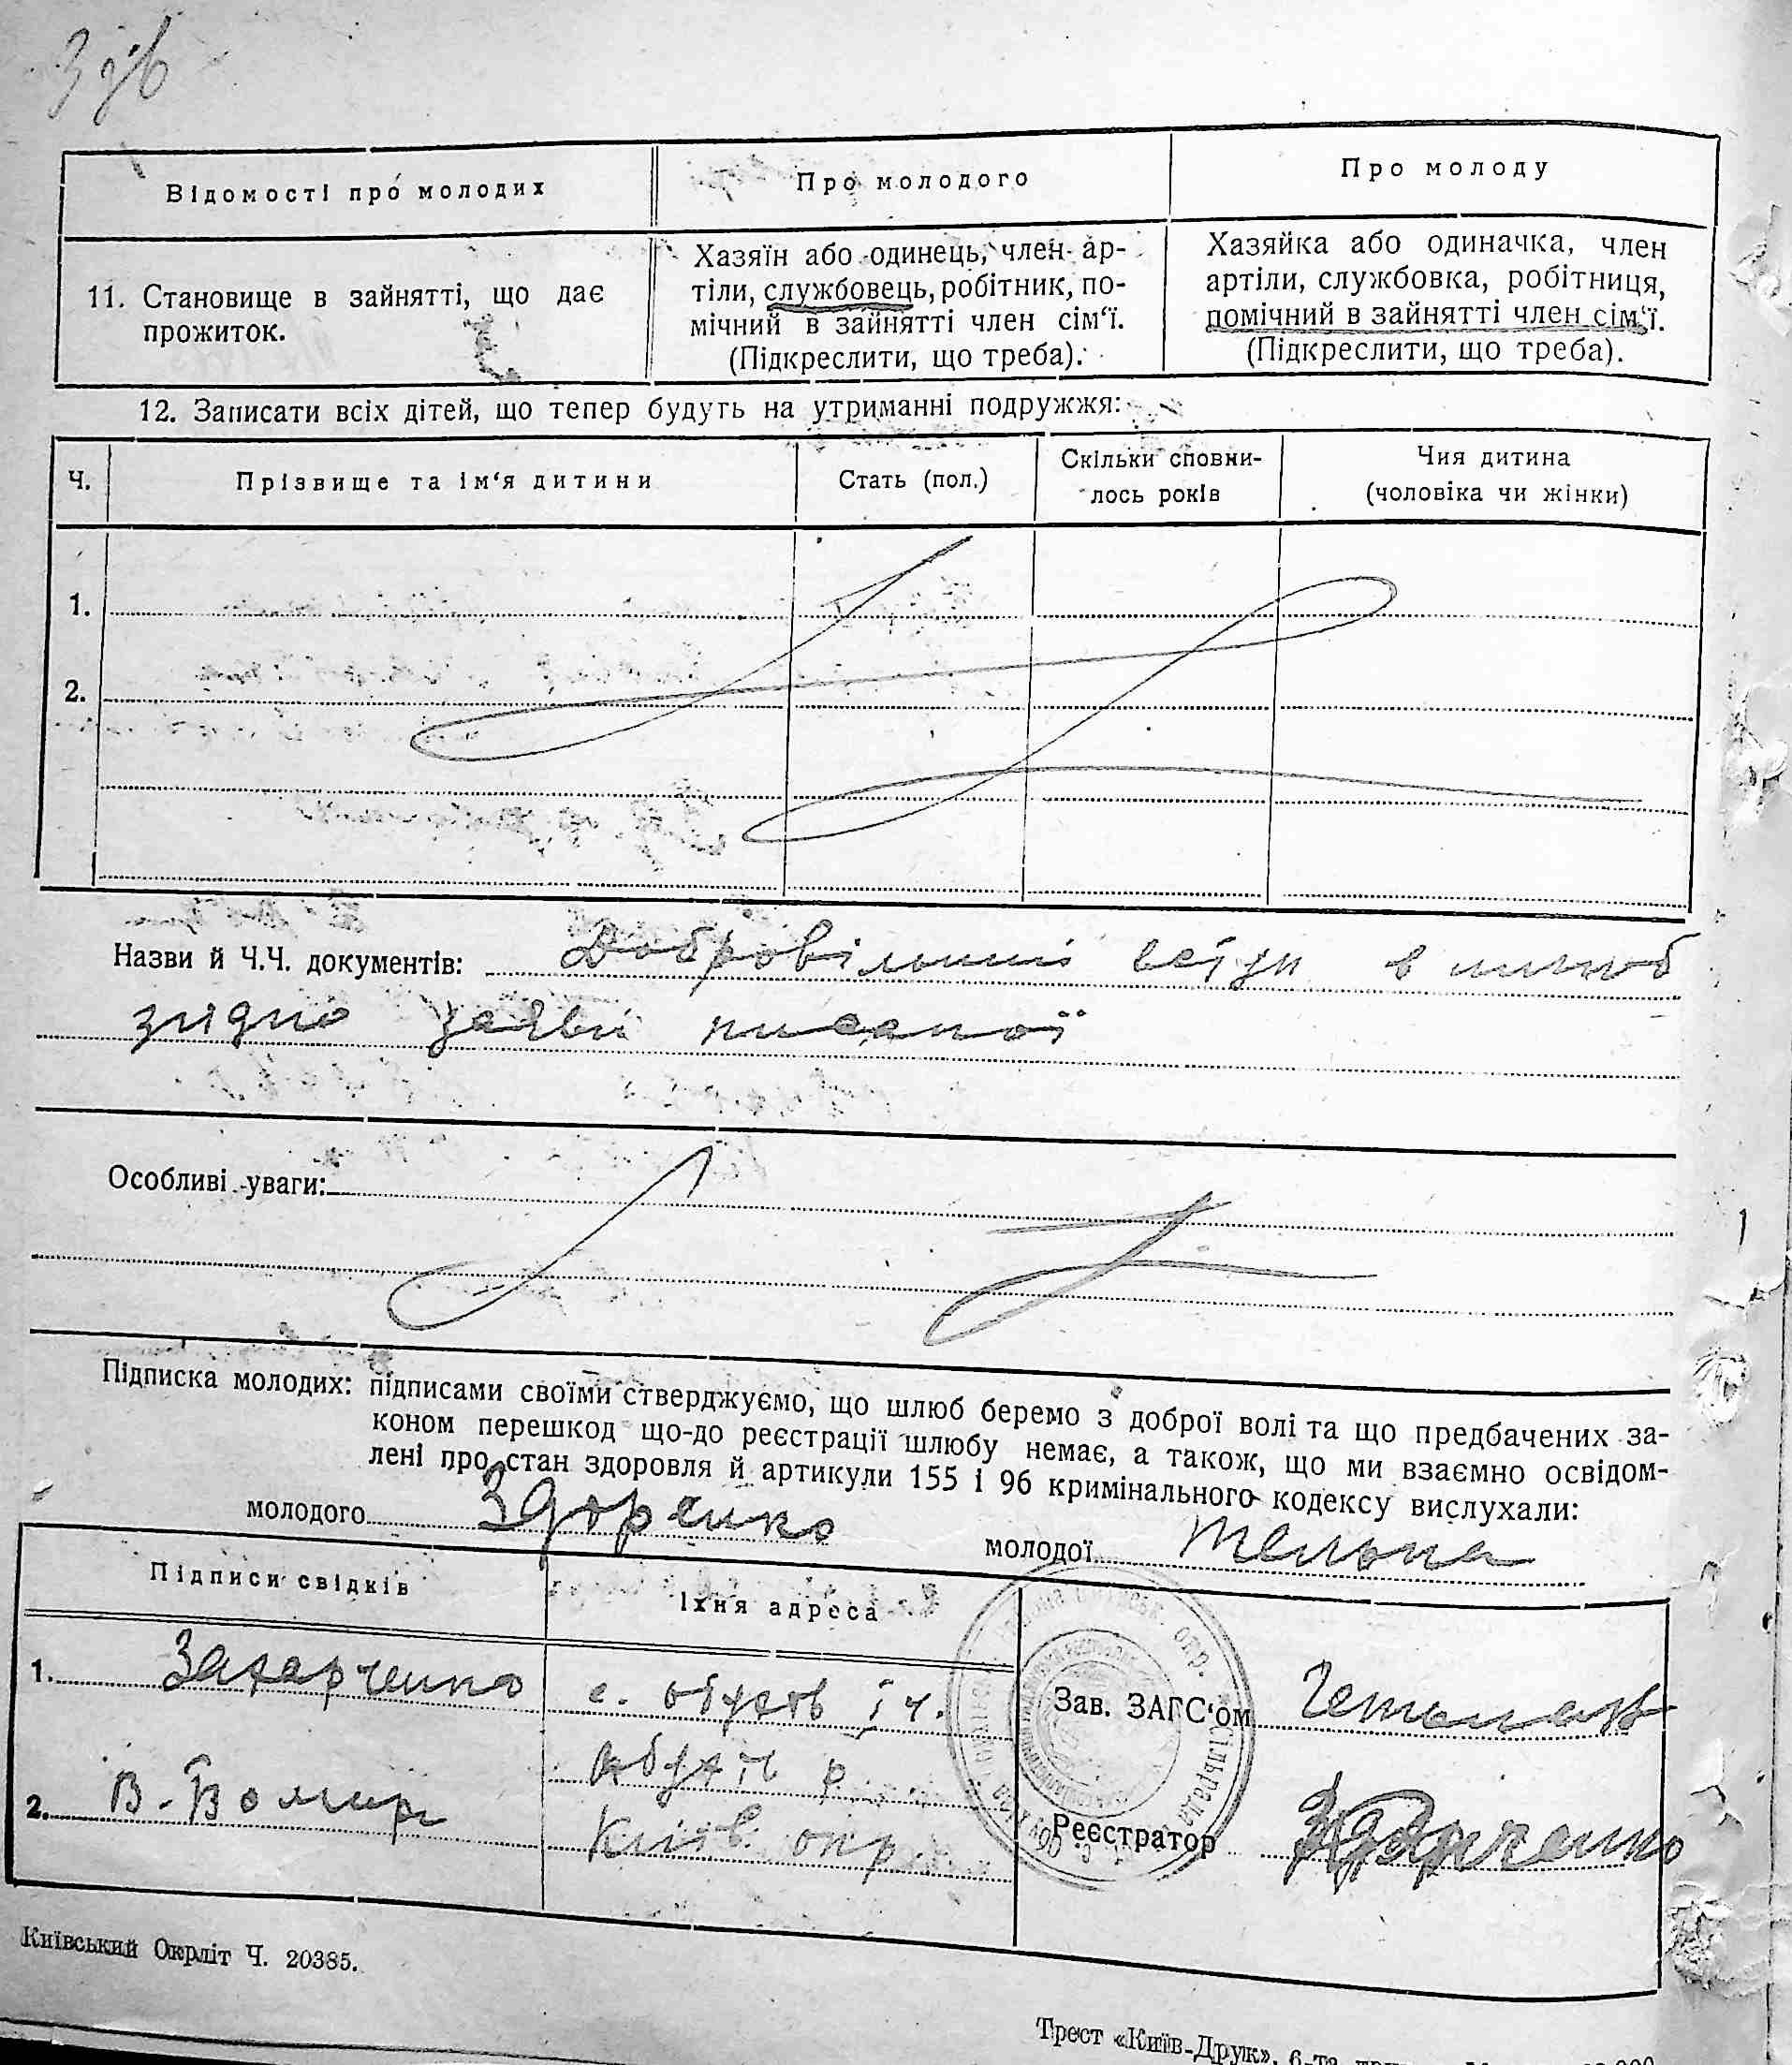 Відомості про молодих
Про молодого
Про молоду
11. Становище в зайнятті, що дає
прожиток.
Хазяїн або одинець, член ар-
тіли, службовець, робітник, по-
мічний в зайнятті член сім‘ї.
(Підкреслити, що треба).
Хазяйка або одиначка, член
артіли, службовка, робітниця,
помічний в зайнятті член сім‘ї.
(Підкреслити, що треба).
12. Записати всіх дітей, що тепер будуть на утриманні подружжя:
Ч.
Прізвище та ім‘я дитини
Стать (пол.)
Скільки сповни-
лось років
Чия дитина
(чоловіка чи жінки)
1.
2.
Назви й Ч.Ч. документів: Добровільний вступ в шлюб
згідно заяви писаної
Особливі уваги:
Підписка молодих: підписами своїми стверджуємо, що шлюб беремо з доброї волі та що предбачених за-
коном перешкод що-до реєстрації шлюбу немає, а також, що ми взаємно освідом-
лені про стан здоровля й артикули 155 і 96 кримінального кодексу вислухали:
молодого
молодої
Підписи свідків
Їхня адреса
1. Захарченко
с. Обухів І ч.
Обухів р
2. В.
Київ. окр
Зав. ЗАГС‘ом
Реєстратор
Київський Окрліт Ч. 20385.
Трест «Київ-Друк», 6-та